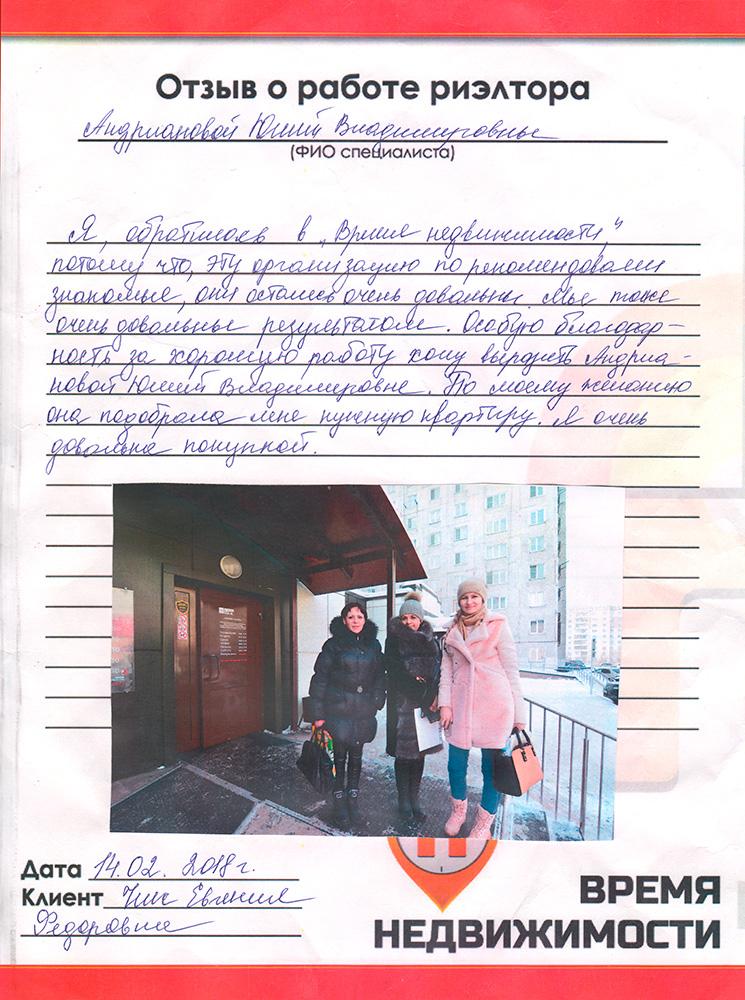 Отзыв о работе риэлтора
Андриановой Юлией Владимировны
(ФИО специалиста)
Я, обратилась в "Время недвижимости",
потому что, эту организацию порекомендовали
знакомые, они остались очень довольны. Мы тоже
очень довольны результатом. Особую благодар-
ность за хорошую работу хочу выразить Андриа-
новой Юлией Владимировне. По моему желанию
она подобрала мне нужную квартиру. Я очень
довольна покупкой.
Дата 14.02. 2018г.
Клиент Евгения
Федоровна
ВРЕМЯ
НЕДВИЖИМОСТИ